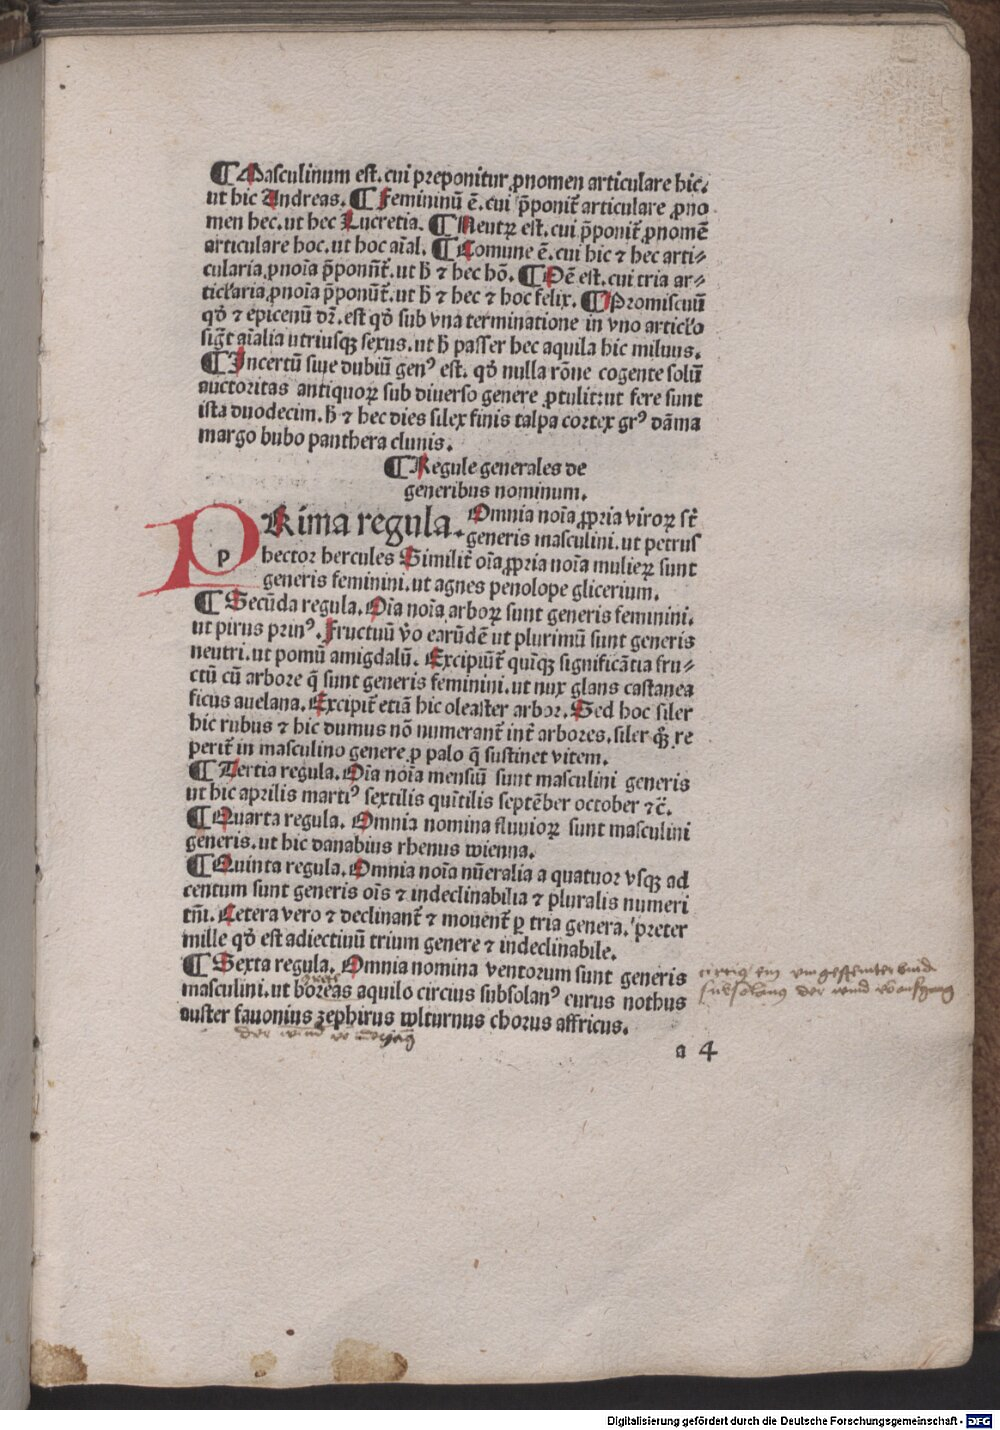 ¶ Masculinum est. cui preponitur ꝓnomen articulare hic.
ut hic Andreas. ¶ Femininū ē. cui p̄ponit᷑ articulare ꝓno
men hec. ut hec Lucretia. ¶ Neutꝝ est. cui p̄ponit᷑ ꝓnomē
articulare hoc. ut hoc aīal. ¶ Cōmune ē. cui hic ⁊ hec arti⸗
cularia ꝓnoīa p̄ponūt᷑. ut h̄ ⁊ hec hō. ¶ Oē est. cui tria ar⸗
ticl̓aria ꝓnoīa p̄ponūt᷑. ut h̄ ⁊ hec ⁊ hoc felix. ¶ Promiscuū
qd̓ ⁊ epicenū dr̄. est qd̓ sub vna terminatione in vno articl̓o
sigt᷑ aīalia utriusqꝫ sexus. ut h̄ passer hec aquila hic miluus.
¶ Incertū siue dubiū genꝰ est. qd̓ nulla rōne cogente solū
auctoritas antiquoꝝ sub diuerso genere ꝓtulit: ut fere sunt
ista duodecim. h̄ ⁊ hec dies silex finis talpa cortex grꝰ dāma
margo bubo panthera clunis.
¶ Regule generales de
generibus nominum.
PRima regula. Omnia noīa ꝓpria viroꝝ st̄
generis masculini. ut petrus
hector hercules Similit᷑ oīa ꝓpria noīa mulieꝝ sunt
generis feminini. ut agnes penolope glicerium.
¶ Secūda regula. Oīa noīa arboꝝ sunt generis feminini.
ut pirus prinꝰ. Fructuū v̓o earūdē ut plurimū sunt generis
neutri. ut pomū amigdalū. Excipiūt᷑ quīqꝫ significātia fru⸗
ctū cū arbore q̄ sunt generis feminini. ut nux glans castanea
ficus auelana. Excipit᷑ etiā hic oleaster arbor. Sed hoc siler
hic rubus ⁊ hic dumus nō numerant᷑ int᷑ arbores. siler qꝫ̓ re
perit᷑ in masculino genere ꝓ palo q̄ sustinet vitem.
¶ Tertia regula. Oīa noīa mensiū sunt masculini generis
ut hic aprilis martiꝰ sextilis quītilis septēber october ⁊c̄.
¶ Quarta regula. Omnia nomina fluuioꝝ sunt masculini
generis. ut hic danabius rhenus wienna.
¶ Quinta regula. Omnia noīa nūeralia a quatuor vsqꝫ ad
centum sunt generis oīs ⁊ indeclinabilia ⁊ pluralis numeri
tm̄. Cetera vero ⁊ declinant᷑ ⁊ mouent᷑ ꝑ tria genera. preter
mille qd̓ est adiectiuū trium genere ⁊ indeclinabile.
¶ Sexta regula. Omnia nomina ventorum sunt generis
masculini. ut boreas aquilo circius subsolanꝰ eurus nothus
auster fauonius zephirus wlturnus chorus affricus.
a 4
Digitalisierung gefördert durch die Deutsche Forschungsgemeinschaft - DFG